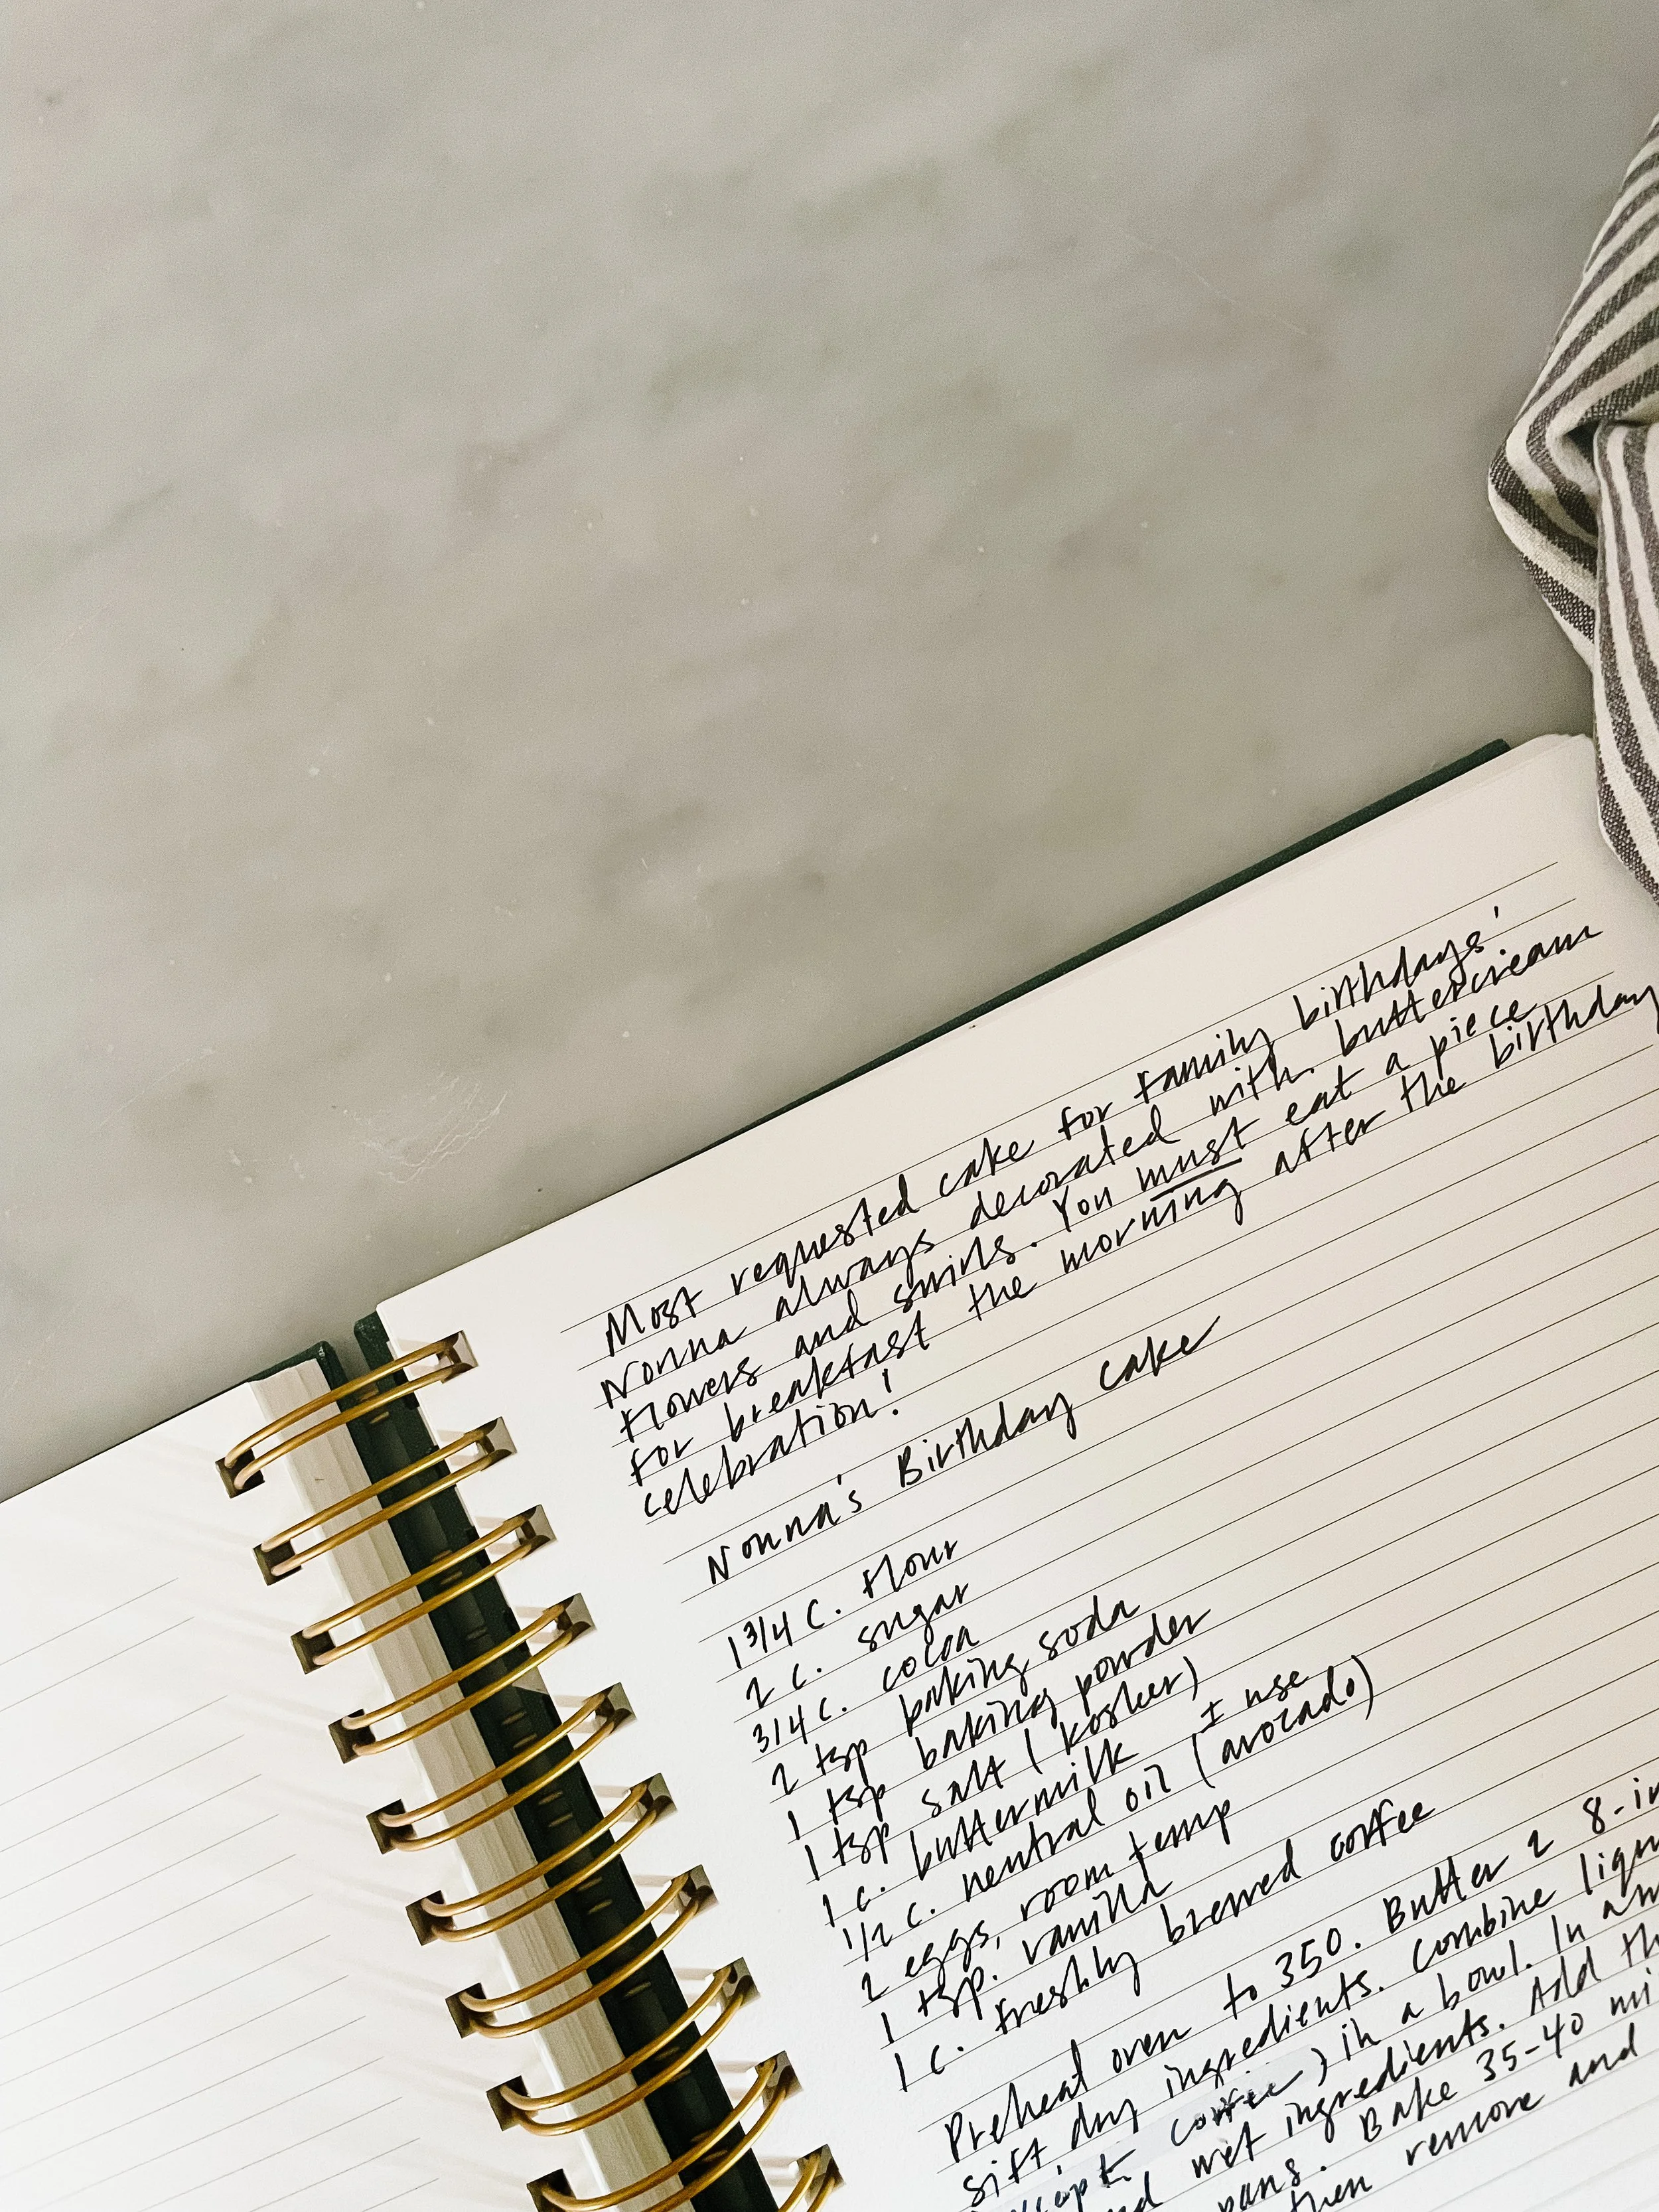 Most requested cake for family birthdays!
Nonna always decorated with buttercream
flowers and swirls. You must eat a piece
for breakfast the morning after the birthday
celebration!
Nonna's Birthday cake
1 3/4 C. flour
2 c. sugar
3/4 c. cocoa
2 tsp baking soda
1 tsp baking powder
1 tsp salt (kosher)
1 c. buttermilk
1/2 c. neutral oil (I use avocado)
2 eggs, room temp
1 tsp. vanilla
1 c. freshly brewed coffee
Preheat oven to 350. Butter 2 8-in
sift dry ingredients. Combine
coffee) in a bowl. In
wet ingredients. Add
pans. Bake 35-40
then remove and